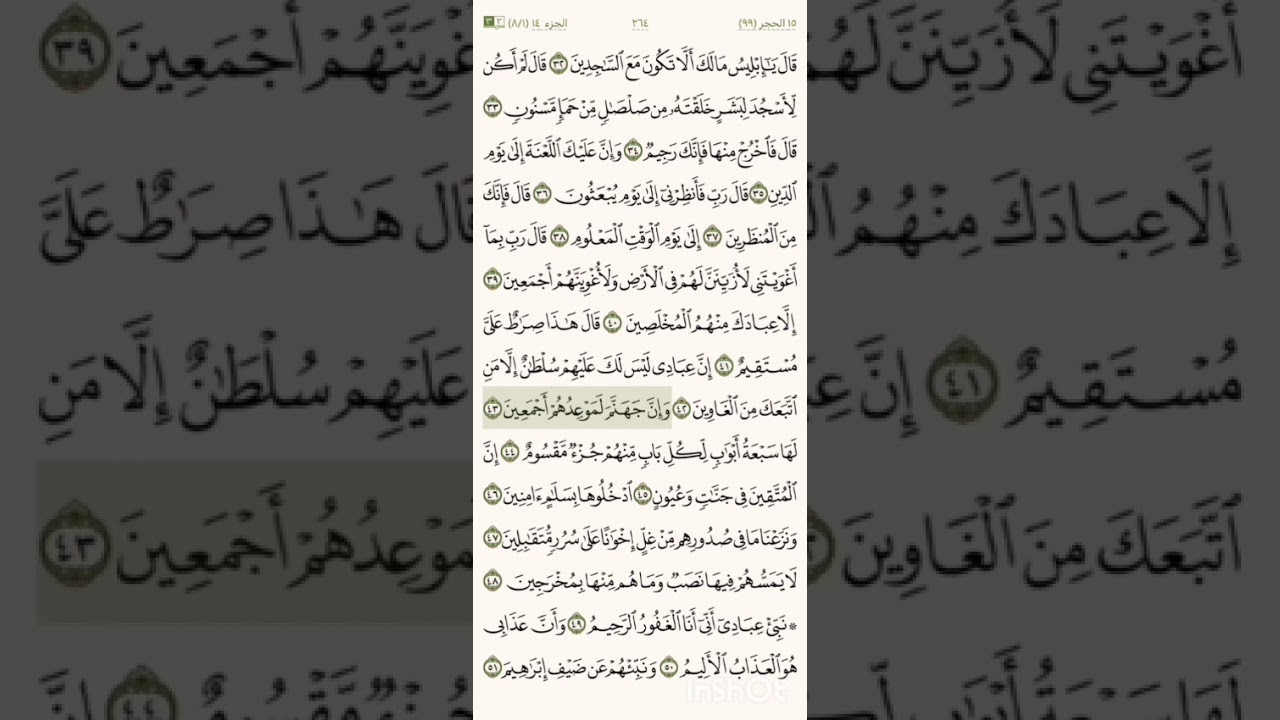 ١٥ الحجر (٩٩) ٢٦٤ الجزء ١٤ (٨/١) ٢ ٣
قَالَ يَٰٓإِبۡلِيسُ مَا لَكَ أَلَّا تَكُونَ مَعَ ٱلسَّٰجِدِينَ ٣٢ قَالَ لَمۡ أَكُن
لِّأَسۡجُدَ لِبَشَرٍ خَلَقۡتَهُۥ مِن صَلۡصَٰلٖ مِّنۡ حَمَإٖ مَّسۡنُونٖ ٣٣
قَالَ فَٱخۡرُجۡ مِنۡهَا فَإِنَّكَ رَجِيمٞ ٣٤ وَإِنَّ عَلَيۡكَ ٱللَّعۡنَةَ إِلَىٰ يَوۡمِ
ٱلدِّينِ ٣٥ قَالَ رَبِّ فَأَنظِرۡنِيٓ إِلَىٰ يَوۡمِ يُبۡعَثُونَ ٣٦ قَالَ فَإِنَّكَ
مِنَ ٱلۡمُنظَرِينَ ٣٧ إِلَىٰ يَوۡمِ ٱلۡوَقۡتِ ٱلۡمَعۡلُومِ ٣٨ قَالَ رَبِّ بِمَآ
أَغۡوَيۡتَنِي لَأُزَيِّنَنَّ لَهُمۡ فِي ٱلۡأَرۡضِ وَلَأُغۡوِيَنَّهُمۡ أَجۡمَعِينَ ٣٩
إِلَّا عِبَادَكَ مِنۡهُمُ ٱلۡمُخۡلَصِينَ ٤٠ قَالَ هَٰذَا صِرَٰطٌ عَلَيَّ
مُسۡتَقِيمٌ ٤١ إِنَّ عِبَادِي لَيۡسَ لَكَ عَلَيۡهِمۡ سُلۡطَٰنٌ إِلَّا مَنِ
ٱتَّبَعَكَ مِنَ ٱلۡغَاوِينَ ٤٢ وَإِنَّ جَهَنَّمَ لَمَوۡعِدُهُمۡ أَجۡمَعِينَ ٤٣
لَهَا سَبۡعَةُ أَبۡوَٰبٖ لِّكُلِّ بَابٖ مِّنۡهُمۡ جُزۡءٞ مَّقۡسُومٌ ٤٤ إِنَّ
ٱلۡمُتَّقِينَ فِي جَنَّٰتٖ وَعُيُونٍ ٤٥ ٱدۡخُلُوهَا بِسَلَٰمٍ ءَامِنِينَ ٤٦
وَنَزَعۡنَا مَا فِي صُدُورِهِم مِّنۡ غِلٍّ إِخۡوَٰنًا عَلَىٰ سُرُرٖ مُّتَقَٰبِلِينَ ٤٧
لَا يَمَسُّهُمۡ فِيهَا نَصَبٞ وَمَا هُم مِّنۡهَا بِمُخۡرَجِينَ ٤٨
۞ نَبِّئۡ عِبَادِيٓ أَنِّيٓ أَنَا ٱلۡغَفُورُ ٱلرَّحِيمُ ٤٩ وَأَنَّ عَذَابِي
هُوَ ٱلۡعَذَابُ ٱلۡأَلِيمُ ٥٠ وَنَبِّئۡهُمۡ عَن ضَيۡفِ إِبۡرَٰهِيمَ ٥١
InShOt